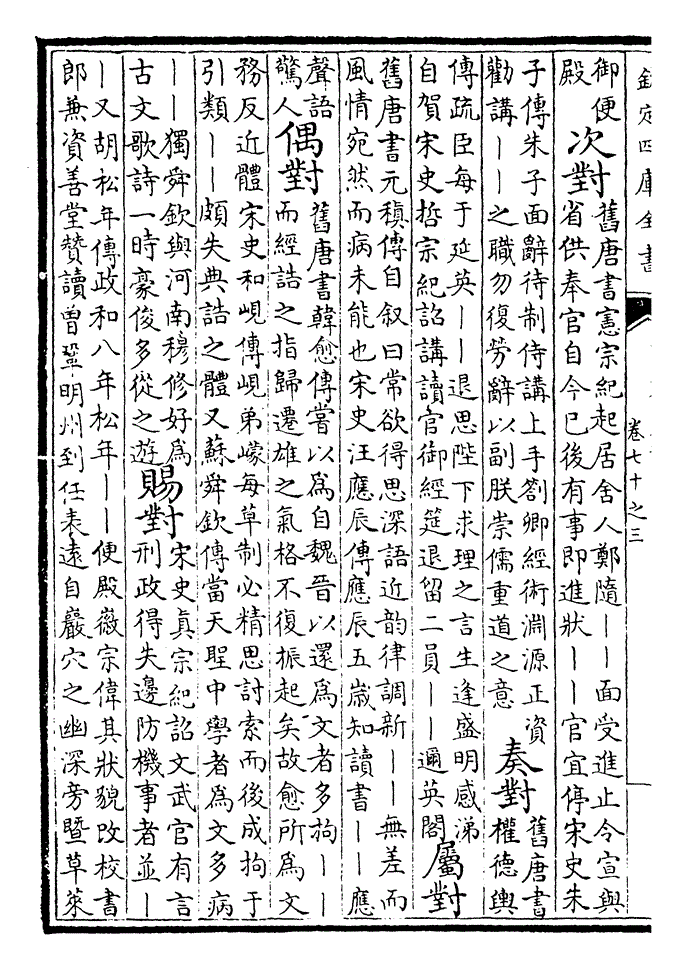 欽定四庫全書
卷七十之三
御便
殿
次對
舊唐書憲宗紀起居舍人鄭隨丨丨面受進止令宣與
省供奉官自今已後有事即進狀丨丨官宜停宋史朱
子傳朱子面辭待制侍講上手劄卿經術淵源正資
勸講丨丨之職勿復勞辭以副朕崇儒重道之意
奏對
舊唐書
權德輿
傳疏臣每于延英丨丨退思陛下求理之言生逢盛明感涕
自賀宋史哲宗紀詔講讀官御經筵退留二員丨丨邇英閣
屬對
舊唐書元稹傳自叙曰常欲得思深語近韵律調新丨丨無差而
風情宛然而病未能也宋史汪應辰傳應辰五嵗知讀書丨丨應
聲語
驚人
偶對
舊唐書韓愈傳嘗以為自魏晉以還為文者多拘丨丨
而經誥之指歸遷雄之氣格不復振起矣故愈所為文
務反近體宋史和峴傳峴弟㠓每草制必精思討索而後成拘于
引類丨丨頗失典誥之體又蘇舜欽傳當天聖中學者為文多病
丨丨獨舜欽與河南穆修好為
古文歌詩一時豪俊多從之遊
賜對
宋史真宗紀詔文武官有言
刑政得失邊防機事者並丨
丨又胡松年傳政和八年松年丨丨便殿徽宗偉其狀貌改校書
郎兼資善堂贊讀曾鞏明州到任表遠自巖穴之幽深旁暨草萊